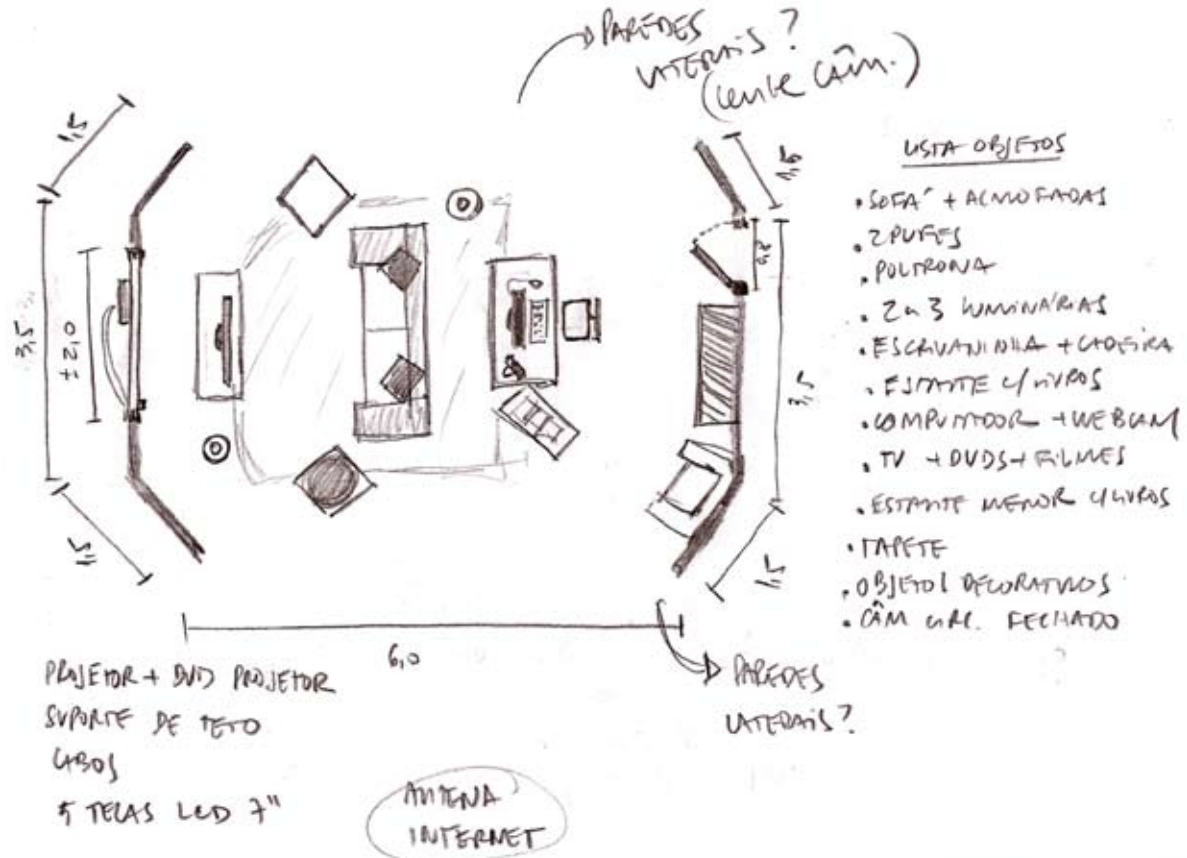 PAREDES
LATERAIS?
(LENTE CÂM.)
1,5
3,5
2,70
1,5
6,0
1,5
0,8
3,5
1,5
LISTA OBJETOS
• SOFÁ + ALMOFADAS
• 2 PUFES
• POLTRONA
• 2 a 3 LUMINÁRIAS
• ESCRIVANINHA + CADEIRA
• ESTANTE C/ LIVROS
• COMPUTADOR + WEBCAM
• TV + DVDS + FILMES
• ESTANTE MENOR C/ LIVROS
• TAPETE
• OBJETOS DECORATIVOS
• CÂM CIRC. FECHADO
PAREDES
LATERAIS?
PROJETOR + DVD PROJETOR
SUPORTE DE TETO
CABOS
TELAS LCD 7"
ANTENA
INTERNET